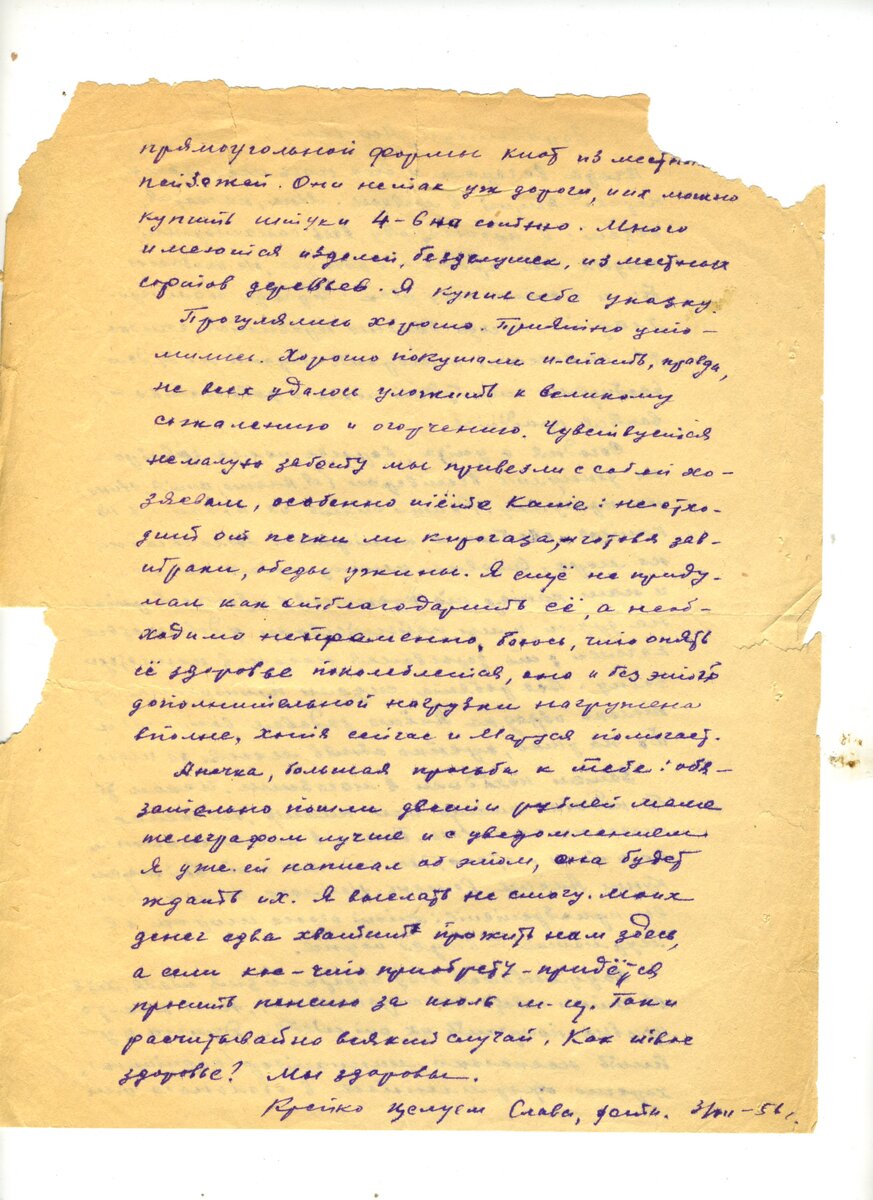 прямоугольной формы киот из местных
пейзажей. Они не так уж дороги, и их можно
купить штуки 4-6 на сотню. Много
имеются изделей, безделушек, из местных
сортов деревьев. Я купил себе указку.
Прогулялись хорошо. Приятно уто-
мились. Хорошо покушали и спать, правда,
не всех удалос уложить к великому
сожалению и огорчению. Чувствуется
немалую заботу мы привезли с собой хо-
зяевам, особенно тёте Кате: не отхо-
дит от печки ли кирогаза, готовя зав-
траки, обеды ужины. Я ещё не приду-
мал как отблагодарить её, а необ-
ходимо непременно, боюсь, что опять
её здоровье поколеблется, она и без этой
дополнительной нагрузки нагружена
вполне, хотя сейчас и Маруся помогает.
Анечка, большая просьба к тебе: обя-
зательно пошли двести рублей маме
телеграфом лучше и с уведомлением
Я уже ей написал об этом, она будет
ждать их. Я выслать не смогу. Моих
денег едва хватит прожить нам здесь,
а если кое-что приобрету - придётся
просить пенсию за июль м-ц. Так и
расчитывай на всякий случай. Как твое
здоровье? Мы здоровы.
Крепко целуем Слава, дети. 3/VII-56 г.